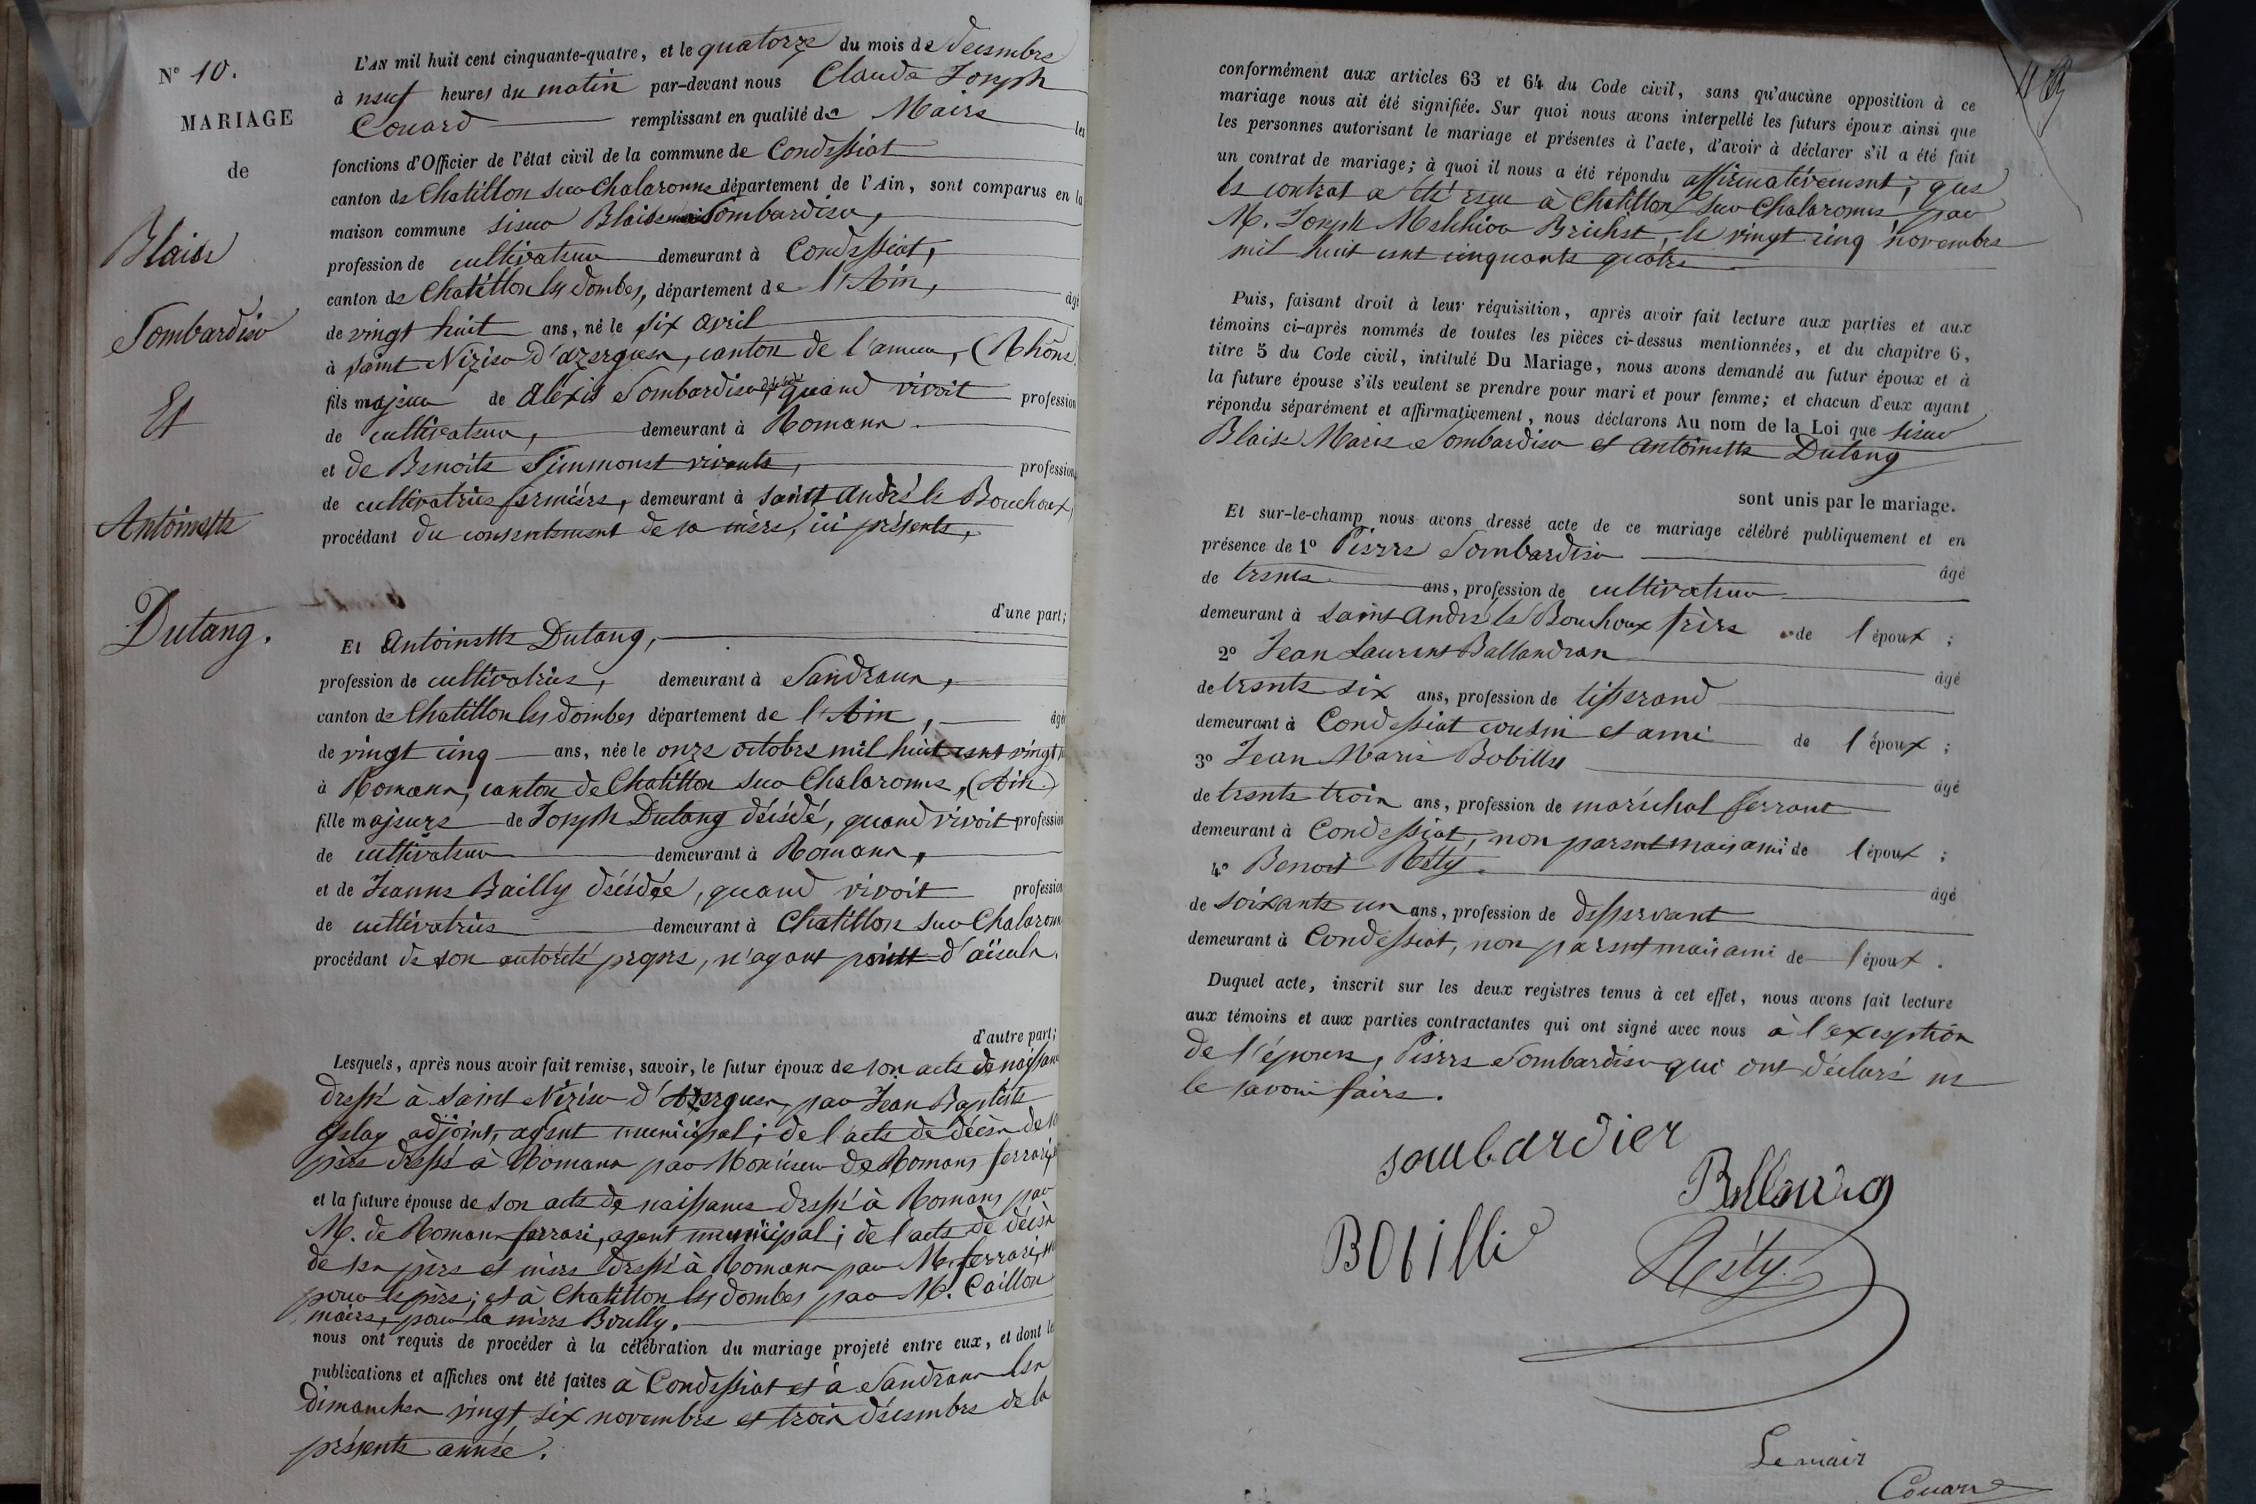 N° 10.
MARIAGE
de
Blaise
Sombardier
Et
Antoinette
Dutang.
L'AN mil huit cent cinquante-quatre, et le quatorze du mois de décembre
à neuf heures du matin par-devant nous Claude Joseph
Couard remplissant en qualité de Maire les
fonctions d'Officier de l'état civil de la commune de Condessiat
canton de Chatillon sur Chalaronne département de l'Ain, sont comparus en la
maison commune sieur Blaise Sombardier,
profession de cultivateur demeurant à Condessiat,
canton de Chatillon les dombes, département de l'Ain, âgé
de vingt huit ans, né le six avril
à saint Nizier d'azergues, canton de l'amure, (Rhône
fils majeur de Aléxis Sombardier décédé quand vivoit profession
de cultivateur, demeurant à Romans.
et de Benoite Simmonet vivante, profession
de cultivatrice fermière, demeurant à saint André le Bouchoux,
procédant du consentement de sa mère, ici présente,
d'une part;
Et Antoinette Dutang,
profession de cultivatrice, demeurant à Sandrans,
canton de Chatillon les dombes département de l'Ain, âgée
de vingt cinq ans, née le onze octobre mil huit cent vingt
à Romans, canton de Chatillon sur Chalaronne, (Ain)
fille majeure de Joseph Dutang décédé, quand vivoit profession
de cultivateur demeurant à Romans,
et de Jeanne Bailly décédée, quand vivoit profession
de cultivatrice demeurant à Chatillon sur Chalaronne
procédant de son autorité propre, n'ayant point d'aïeuls.
d'autre part;
Lesquels, après nous avoir fait remise, savoir, le futur époux de son acte de naissance
dressé à Saint Nizier d'Azergues, par Jean Baptiste
adjoint, agent municipal; de l'acte de décès de son
père dressé à Romans par Monsieur de Romans ferrari,
et la future épouse de son acte de naissance dressé à Romans par
M. de Romans ferrari, agent municipal; de l'acte de décès
de ses père et mère dressé à Romans par M. ferrari,
pour le père; et à Chatillon les dombes par M. Caillon
maire, pour la mère Boully.
nous ont requis de procéder à la célébration du mariage projeté entre eux, et dont les
publications et affiches ont été faites à Condessiat et à Sandrans les
dimanches vingt six novembre et trois décembre de la
présente année.
conformément aux articles 63 et 64 du Code civil, sans qu'aucune opposition à ce
mariage nous ait été signifiée. Sur quoi nous avons interpellé les futurs époux ainsi que
les personnes autorisant le mariage et présentes à l'acte, d'avoir à déclarer s'il a été fait
un contrat de mariage; à quoi il nous a été répondu affirmativement; que
le contrat a été reçu à Chatillon sur Chalaronne par
M. Joseph Melchior Brichet, le vingt cinq novembre
mil huit cent cinquante quatre
Puis, faisant droit à leur réquisition, après avoir fait lecture aux parties et aux
témoins ci-après nommés de toutes les pièces ci-dessus mentionnées, et du chapitre 6,
titre 5 du Code civil, intitulé Du Mariage, nous avons demandé au futur époux et à
la future épouse s'ils veulent se prendre pour mari et pour femme; et chacun d'eux ayant
répondu séparément et affirmativement, nous déclarons Au nom de la Loi que sieur
Blaise Marie Sombardier et antoinette Dutang
sont unis par le mariage.
Et sur-le-champ nous avons dressé acte de ce mariage célébré publiquement et en
présence de 1° Pierre Sombardier âgé
de trente ans, profession de cultivateur
demeurant à saint André le Bouchoux frère de l'époux;
2° Jean Laurent Ballandran âgé
de trente six ans, profession de tisserand
demeurant à Condessiat cousin et ami de l'époux;
3° Jean Marie Bobillet âgé
de trente trois ans, profession de maréchal ferrant
demeurant à Condessiat, non parent mais ami de l'époux;
4° Benoit Réty. âgé
de soixante un ans, profession de desservant
demeurant à Condessiat, non parent mais ami de l'époux.
Duquel acte, inscrit sur les deux registres tenus à cet effet, nous avons fait lecture
aux témoins et aux parties contractantes qui ont signé avec nous à l'exception
de l'épouse, Pierre Sombardier qui ont déclaré ne
le savoir faire.
sombardier
Réty
Le mair
Couard